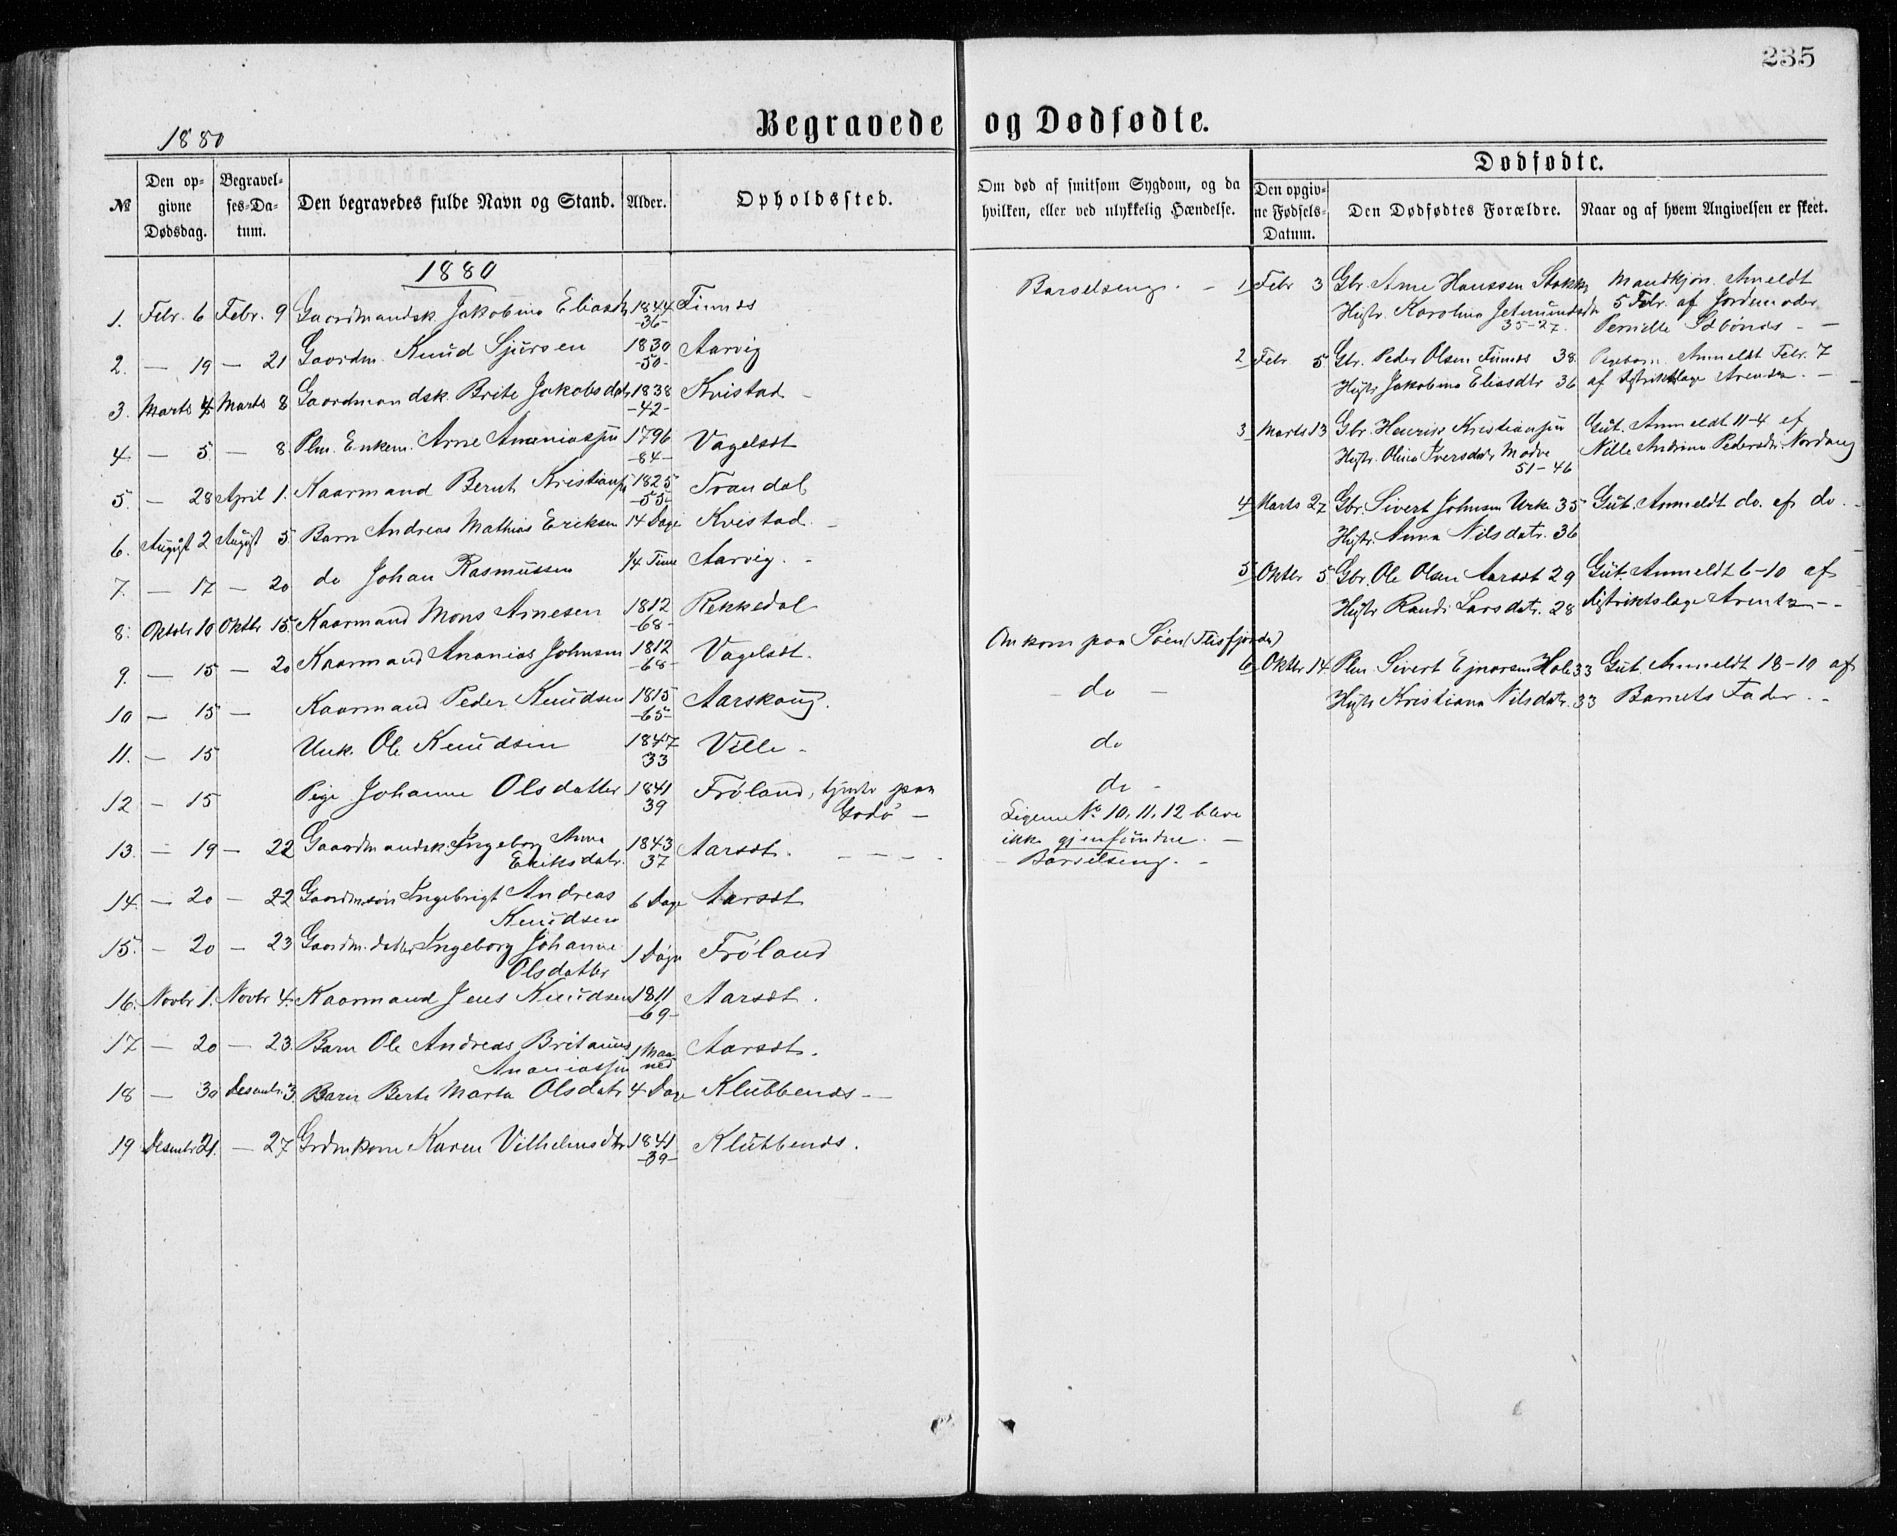 235
1880
Begravede og Dødfødte.
Dødfødte.
№
Den opgivne Dødsdag.
Begravelses-Datum.
Den begravedes fulde Navn og Stand.
Alder.
Opholdssted.
Om død af smitsom Sygdom, og da hvilken, eller ved ulykkelig Hændelse.
Den opgivne Fødsels-Datum.
Den Dødfødtes Forældre.
Naar og af hvem Angivelsen er skeet.
1880
1. Febr. 6 Febr. 9 Gaardmandsk. Jakobine Eliasdtr 1844 -36- Finnes Barselseng. -
2. — 19 — 21 Gaardm. Knud Sjursen 1830 -50- Aarvig
3. Marts 4 Marts 8 Gaardmandsk. Brite Jakobsdatr 1838 -42- Kvistad -
4 — 5 — 8 Plm. Enkem. Arne Ananiassøn 1796 -84- Vagelsæt
5. — 28 April 1. Kaarmand Bernt Kristians. 1825 -55- Trandal
6. August 2 August 5 Barn Andreas Mathias Eriksen 14 Dage Kvistad. -
7. — 17 — 20 do Johan Rasmussen 14 Time Aarvig. -
8. Oktobr 10 Oktbr 15. Kaarmand Mons Arnesen 1812 -68- Rekkedal
9. — 15 — 20 Kaarmand Ananias Johnsen 1812 -68- Vagelsæt. Omkom paa Søen
10 — 15 — Kaarmand Peder Knudsen 1815 -65- Aarskoug. - do -
11. — 15 Unk. Ole Knudsen 1847 33 Ville - do
12 — 15 Pige Johanne Olsdatter 1841 39 Frøland, tjente paa do -
Godø —
Ligene No 10, 11, 12 bleve
ikke gjenfundne. —
13. — 19 — 22 Gaardmandsk. Ingeborg Anne 1843 37 Aarsæt. - - - - - Barselseng. -
Eriksdatr.
14. — 20 — 22 Gaardmsøn Ingebrigt Andreas 6 Dage Aarsæt
Knudsen
15. — 20 — 23 Gaardm.datter Ingeborg Johanne 1 Døgn Frøland
Olsdatter
16. Novbr 1. Novbr 4. Kaarmand Jens Knudsen 1811 -69- Aarsæt.
17 — 20 — 23. Barn Ole Andreas 1 Maaned Aarsæt.
Ananiassøn
18 — 30 Desembr. 3. Barn Berte Marta Olsdatr 4 Dage Klubbenes - -
19 Desembr 21. — 27 Grdmkone Karen Vilhelmsdtr 1841 -39- Klubbenes.
1 Febr 3 Gbr. Arne Hanssen Stokke Mandkjøn. Anmeldt
Hustr. Karoline Jetmundsdtr 5 Febr. af Jordemoder
35-27. Pernille -
2 Febr 5 Gbr. Peder Olsen Finnes 38 Pigebarn Anmeldt Febr. 7
Hustr Jakobine Eliasdtr 36 af Distriktslæge Arentz. -
3 Marts 13 Gbr. Henrik Kristiansøn Gut. Anmeldt 11-4 af
Hustr. Oline Iversdatr Modve Nille Andrine Pedersdtr. Nordang
51-46
4 Marts 27 Gbr. Sivert Johnsen Urke 35 Gut. Anmeldt do. af do. -
Hustr. Anna Nilsdatr. 36
5 Oktbr 5 Gbr. Ole Olsen Aarsæt 29 Gut. Anmeldt 6-10 af
Hustr Randi Larsdatr. 28 Distriktslæge Arentz - -
6 Oktbr 14 Plm. Sivert Ejnarsen Hole 33 Gut. Anmeldt 18-10 af
Hustr Kristiane Nilsdatr. 33 Barnets Fader. -